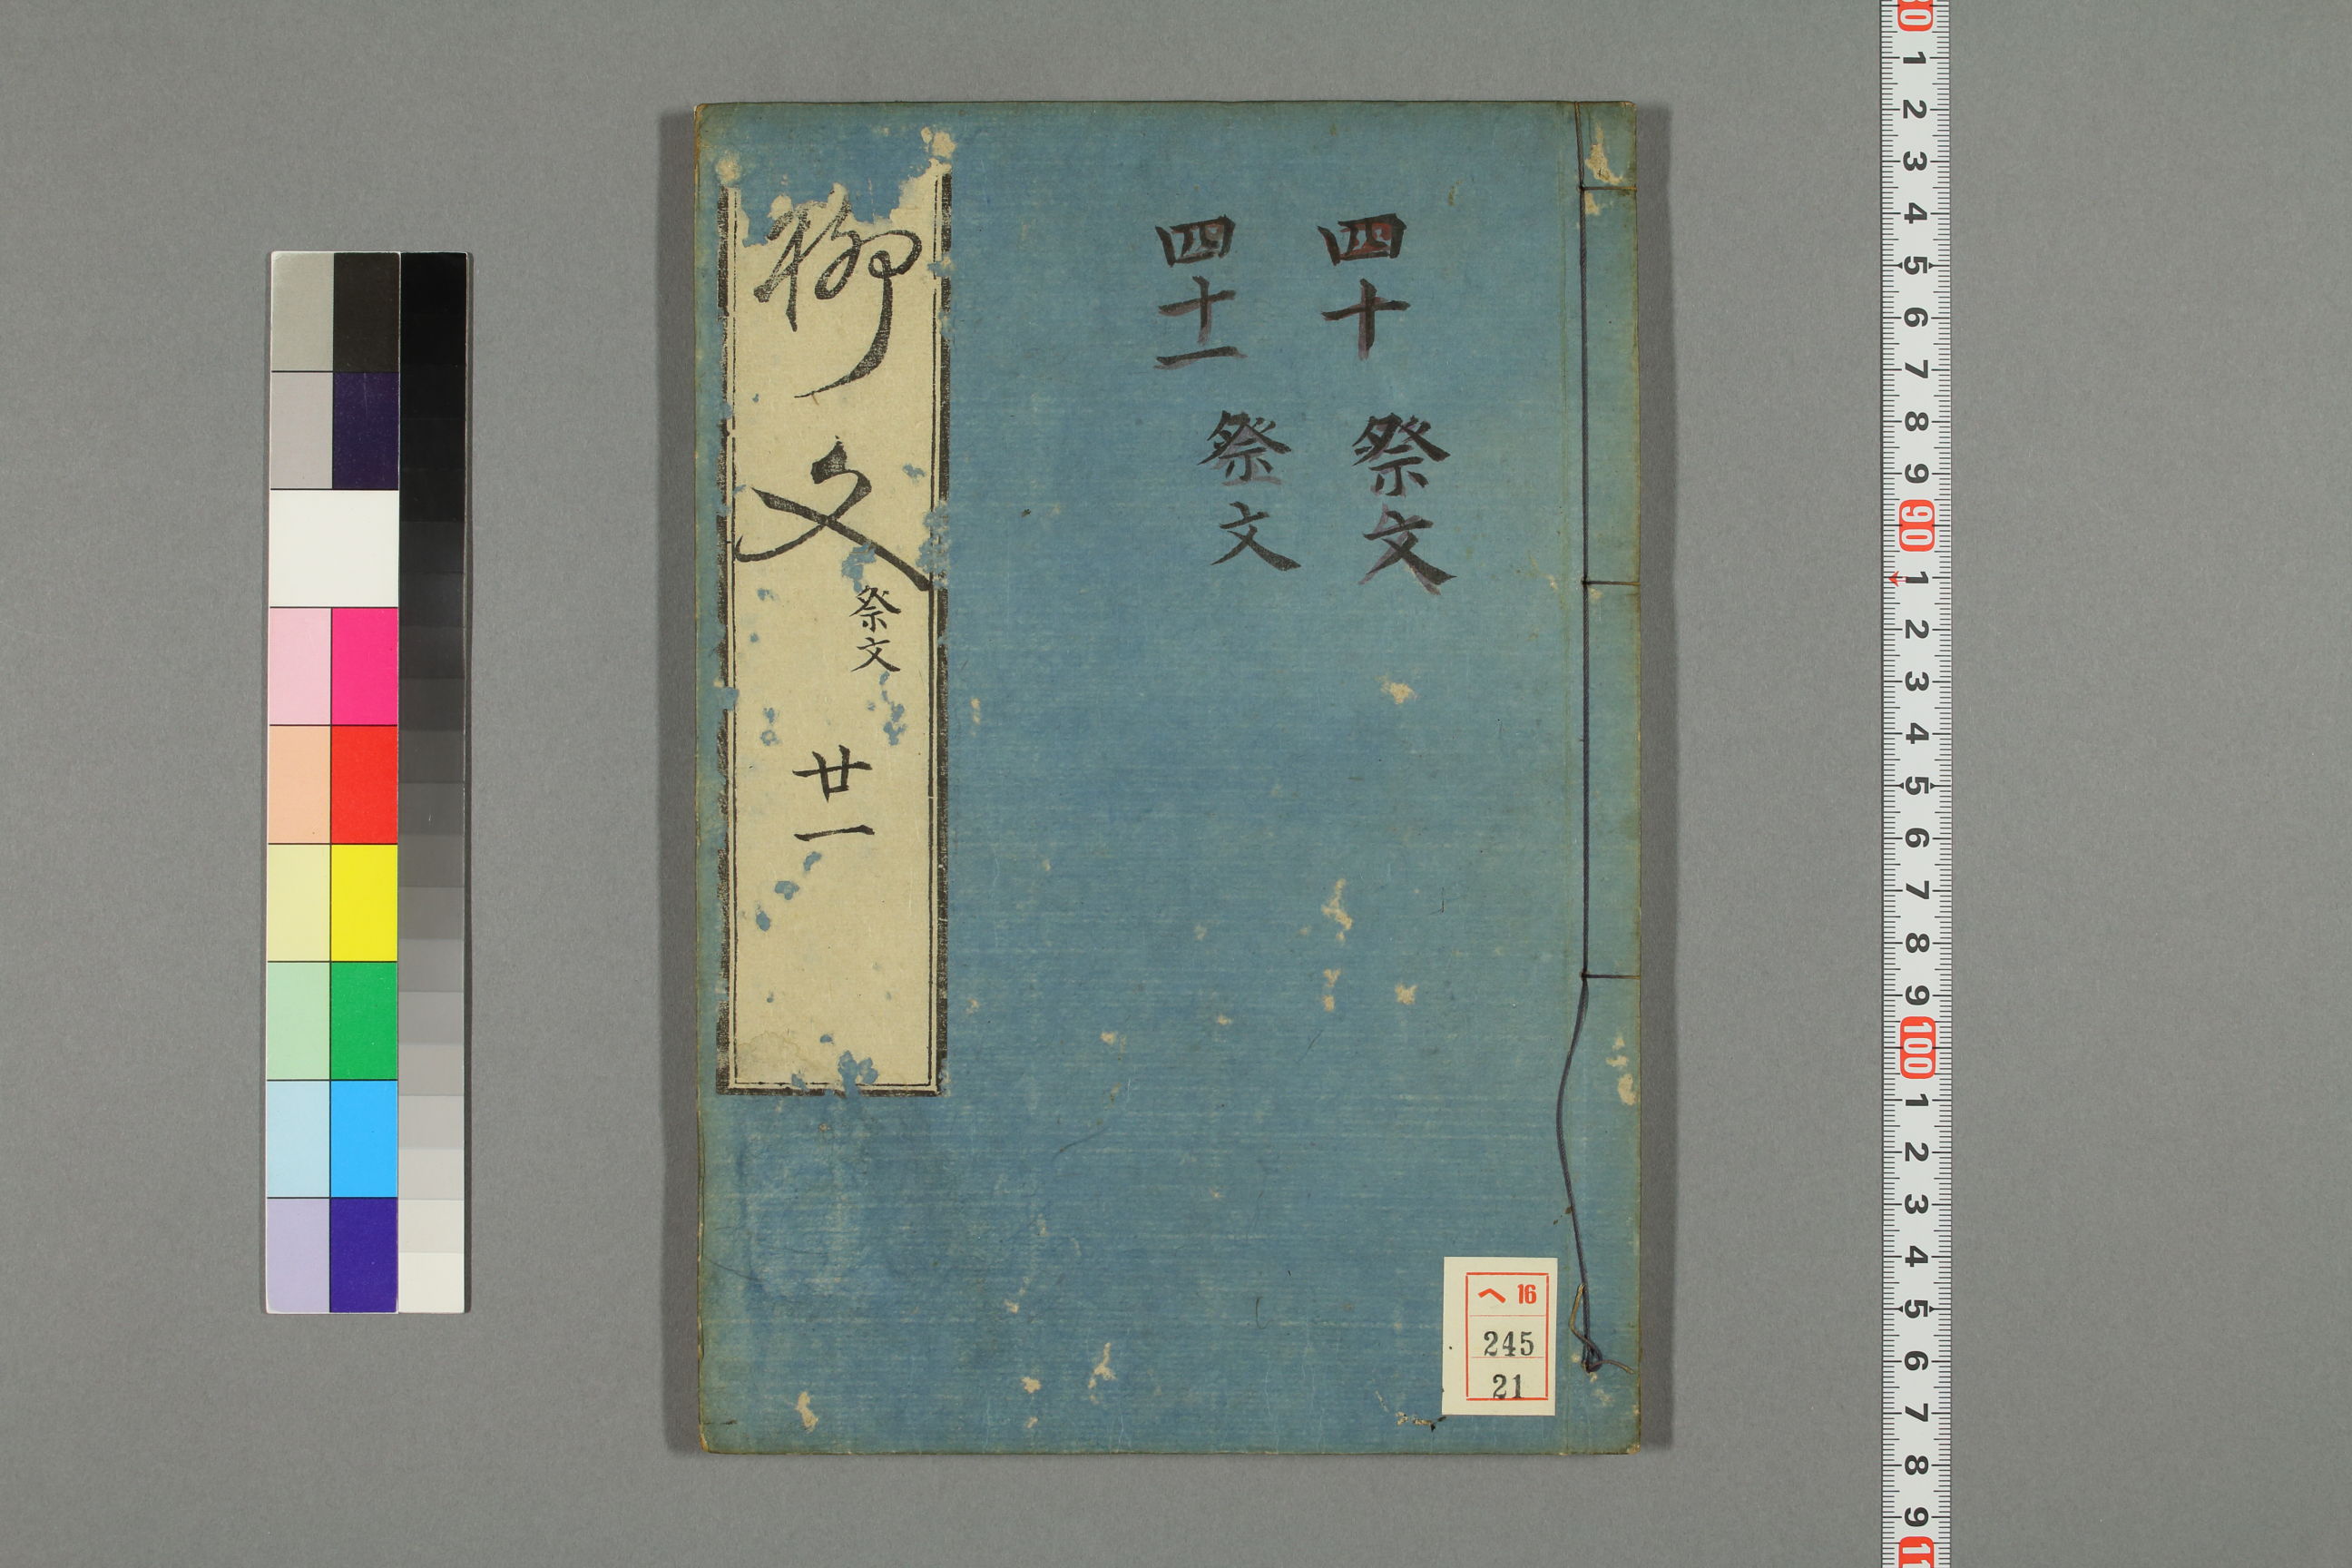 四十　祭文
四十一　祭文
柳文　祭文　廿一
ヘ 16
245
21
80
1
2
3
4
5
6
7
8
9
90
1
2
3
4
5
6
7
8
9
100
1
2
3
4
5
6
7
8
9